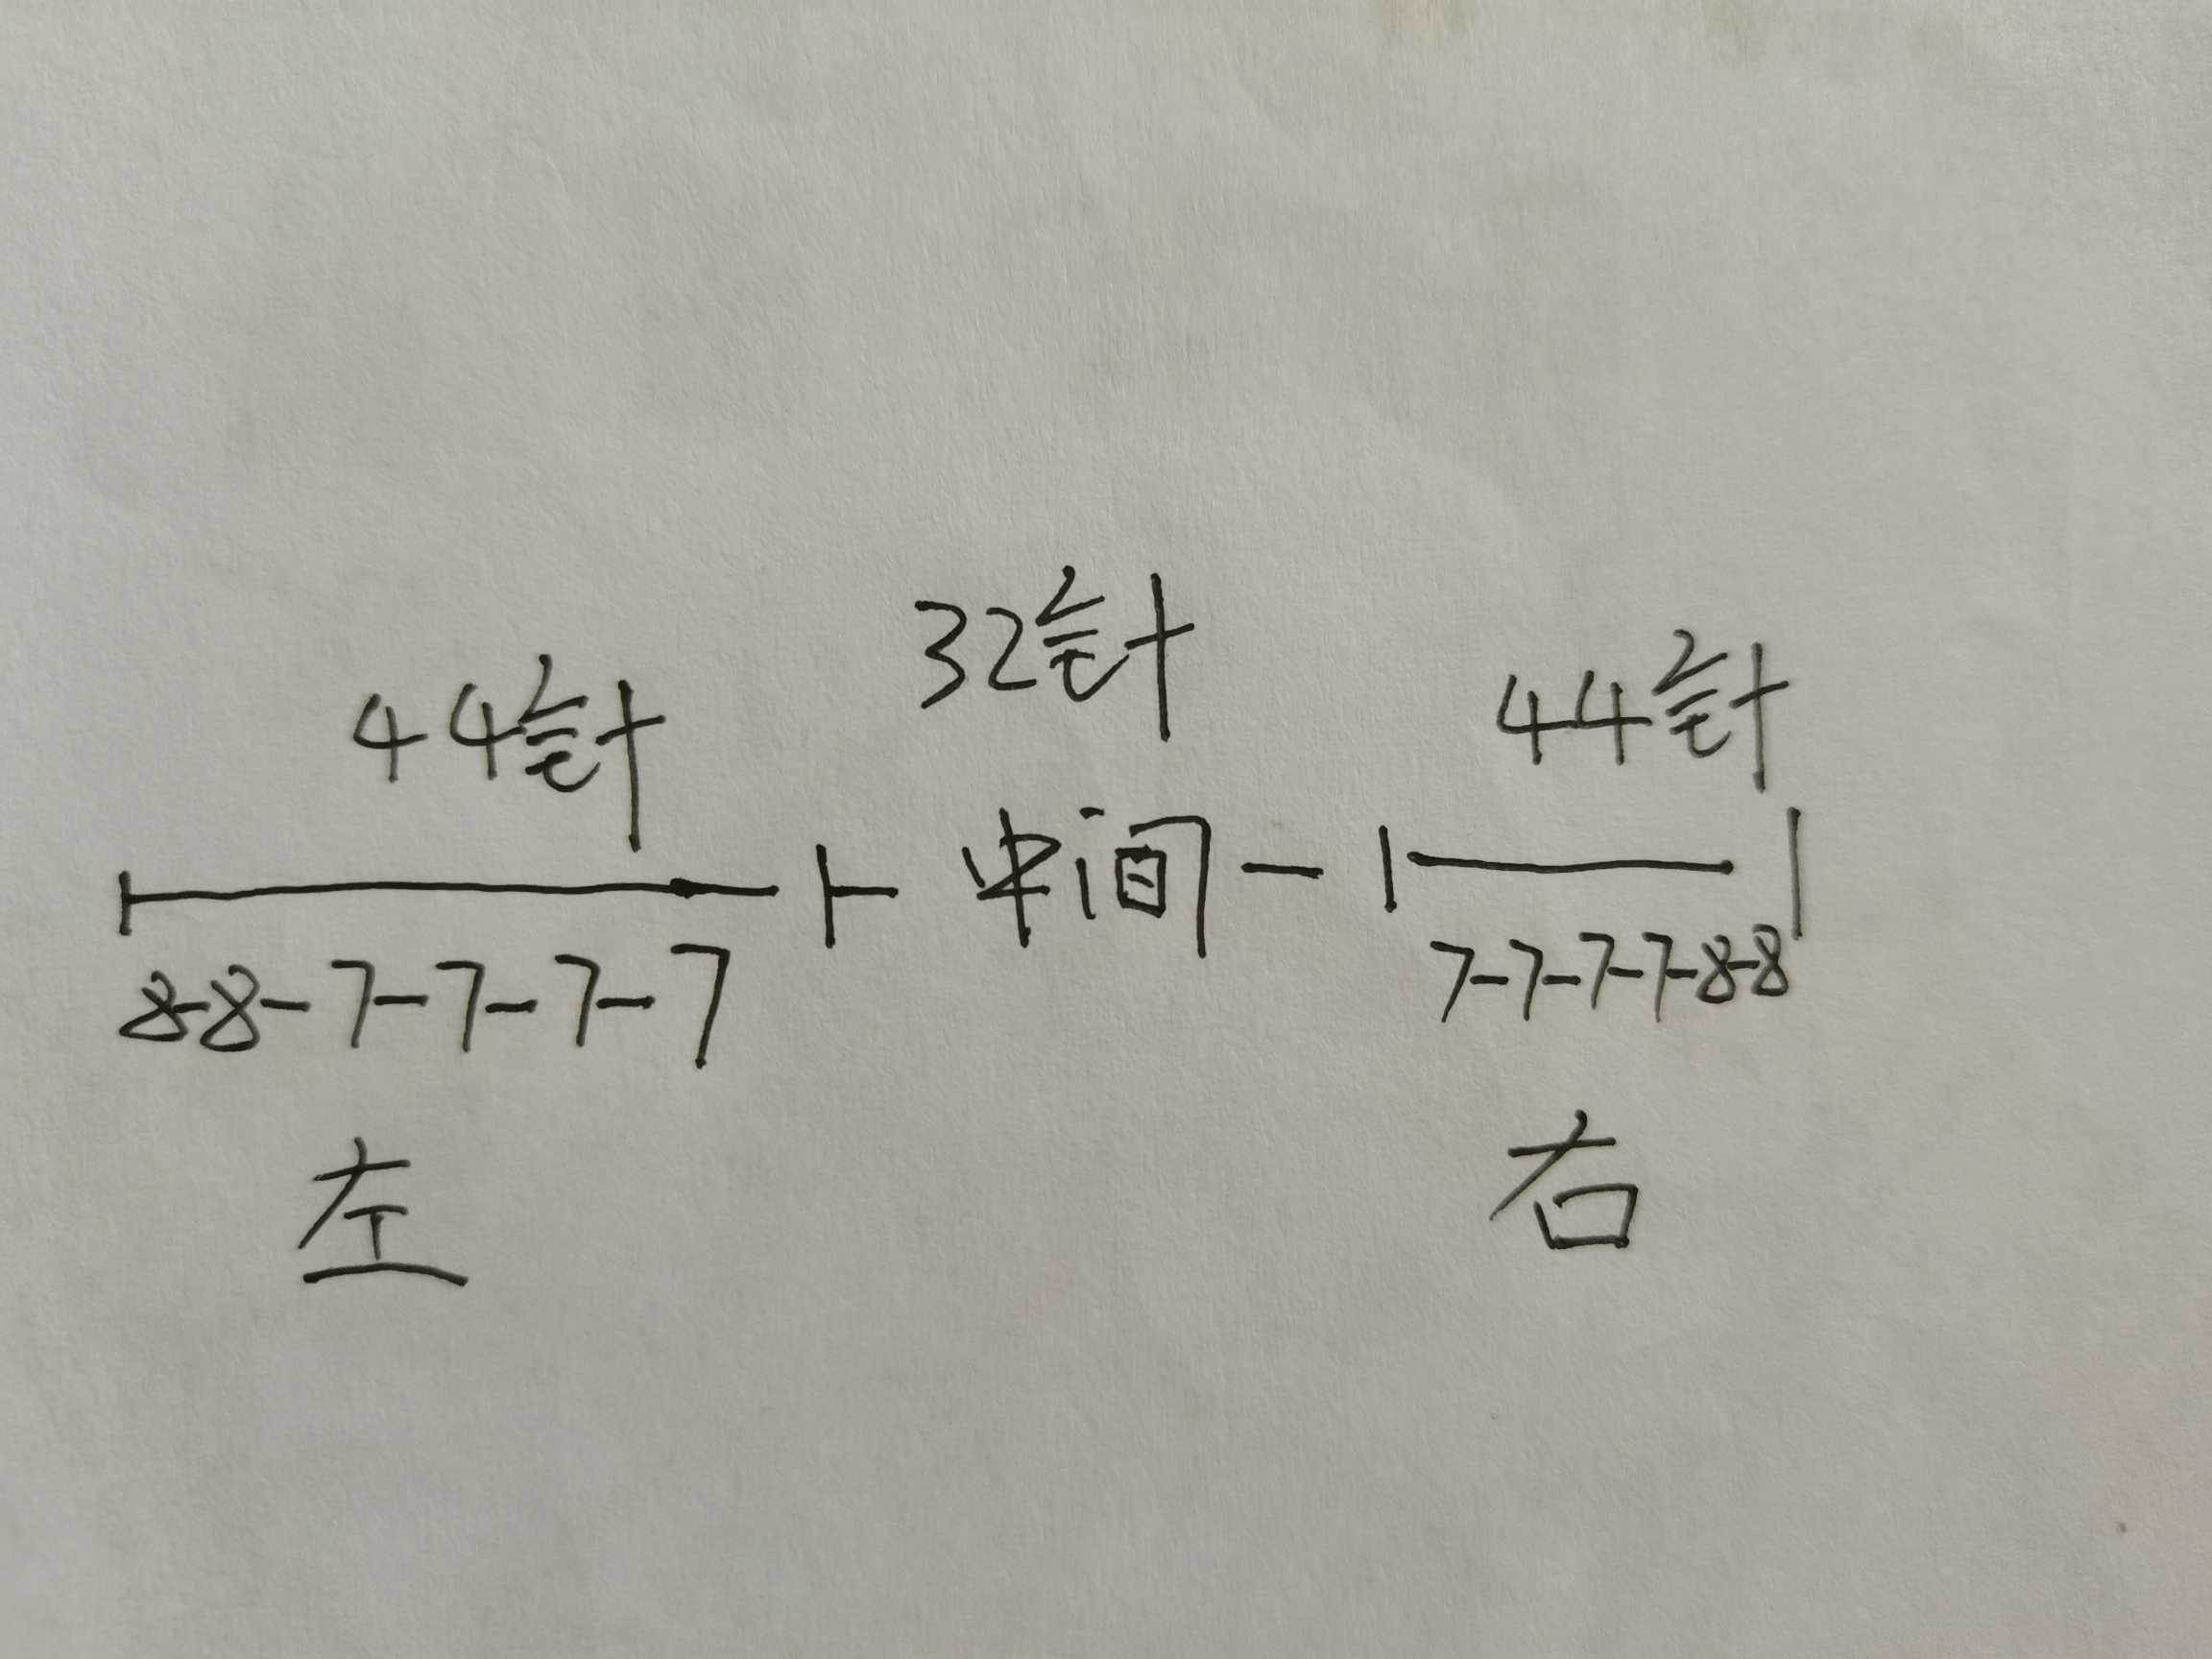 44针 32针 44针
中间
8-8-7-7-7-7 7-7-7-7-8-8
左 右